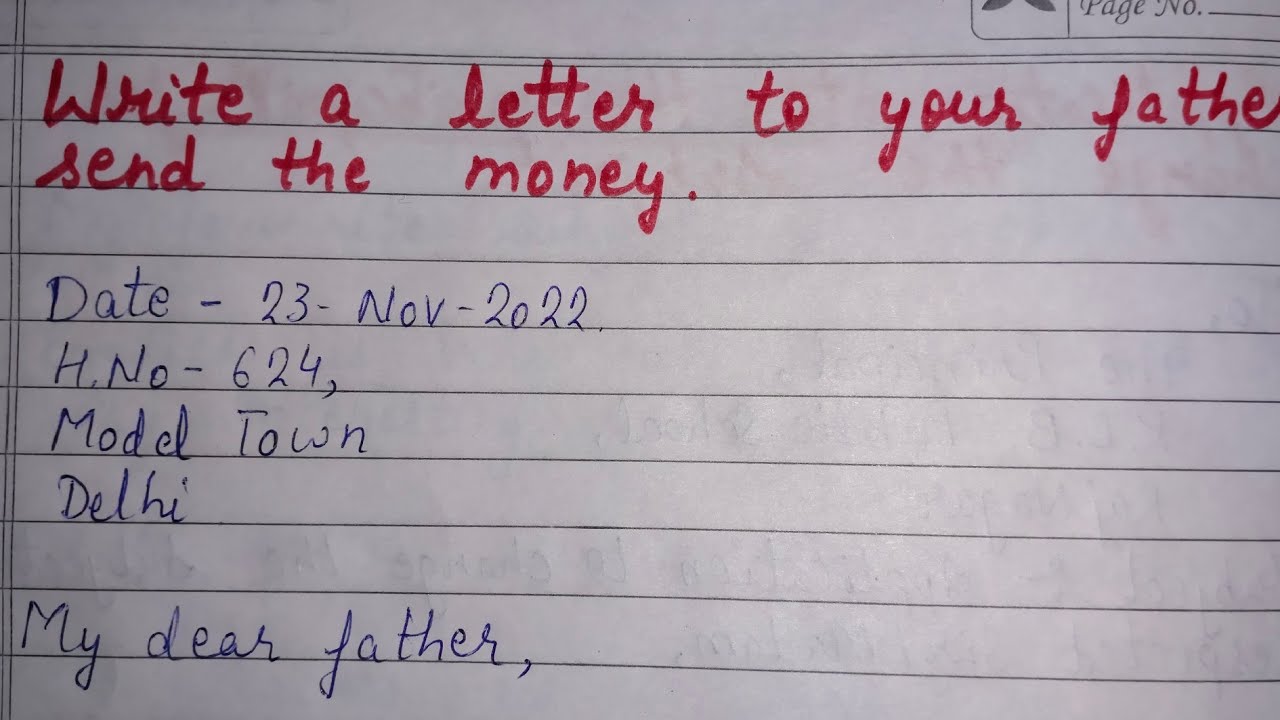 Page No.
Write a letter to your fathe
send the money.
Date - 23-Nov-2022.
H.No- 624,
Model Town
Delhi
My dear father,